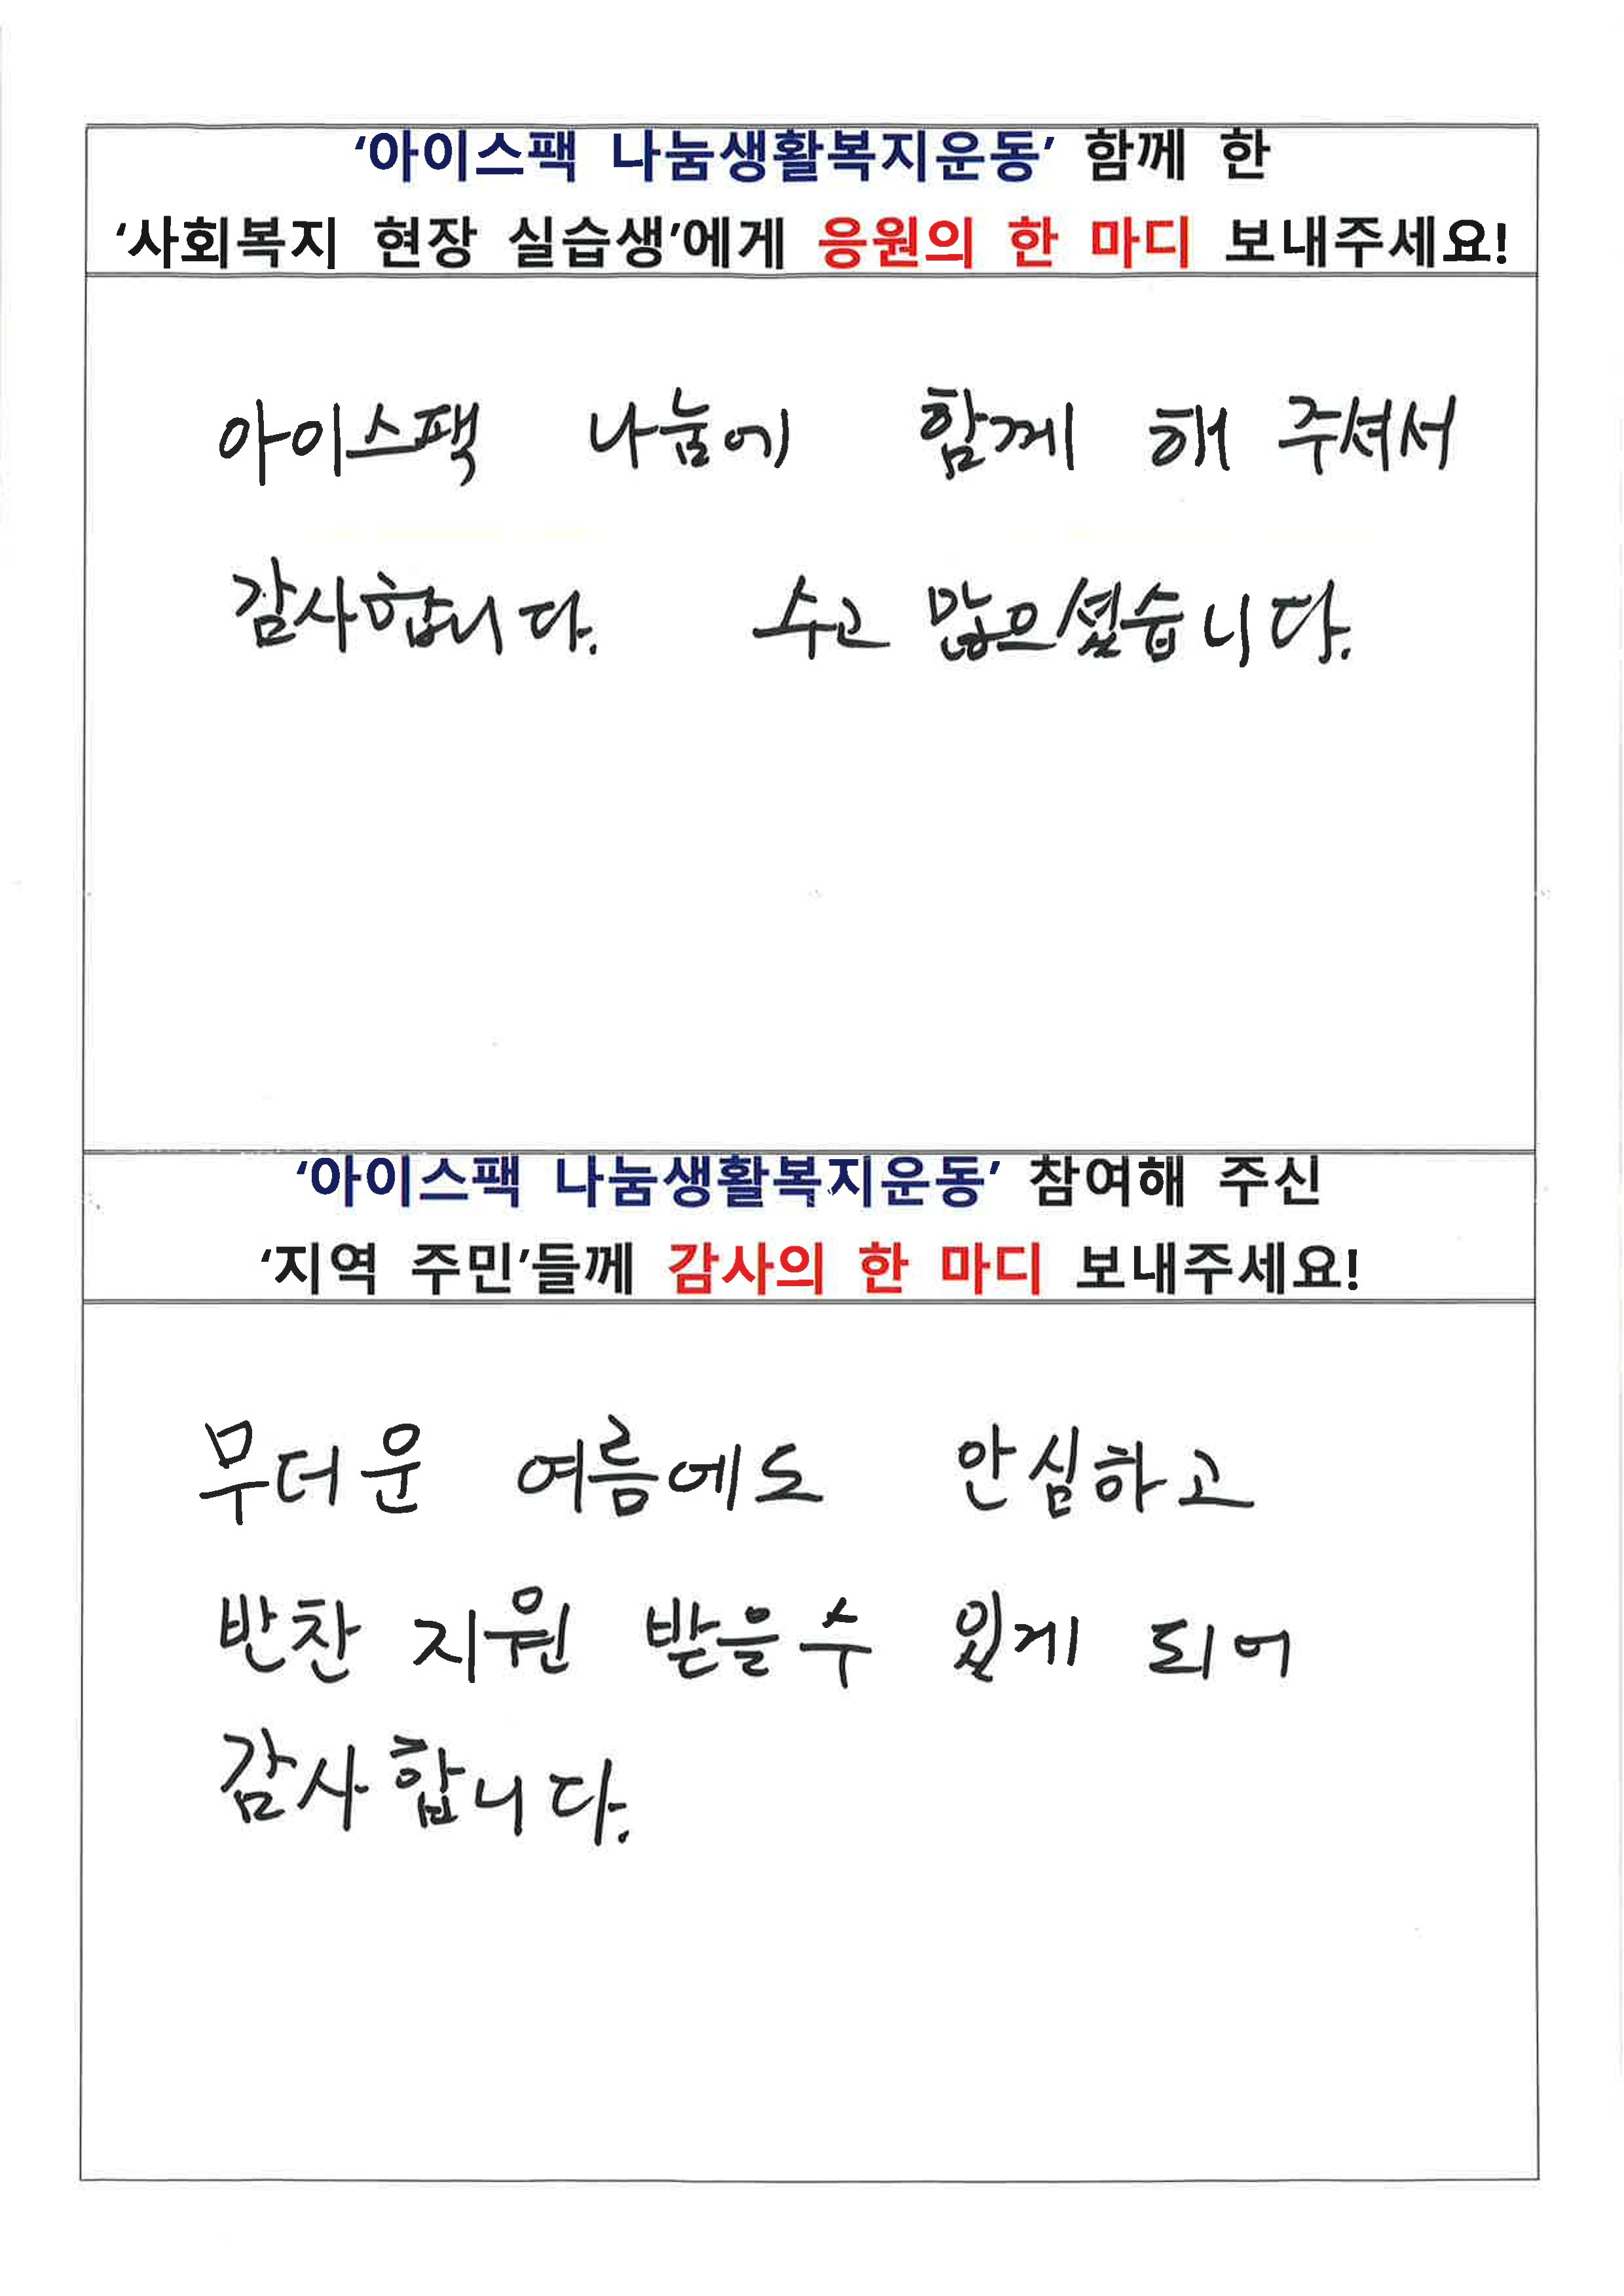 ‘아이스팩 나눔생활복지운동’ 함께 한
‘사회복지 현장 실습생’에게 응원의 한 마디 보내주세요!
아이스팩 나눔에 함께 해 주셔서
감사합니다. 수고 많으셨습니다.
‘아이스팩 나눔생활복지운동’ 참여해 주신
‘지역 주민’들께 감사의 한 마디 보내주세요!
무더운 여름에도 안심하고
반찬 지원 받을수 있게 되어
감사합니다.